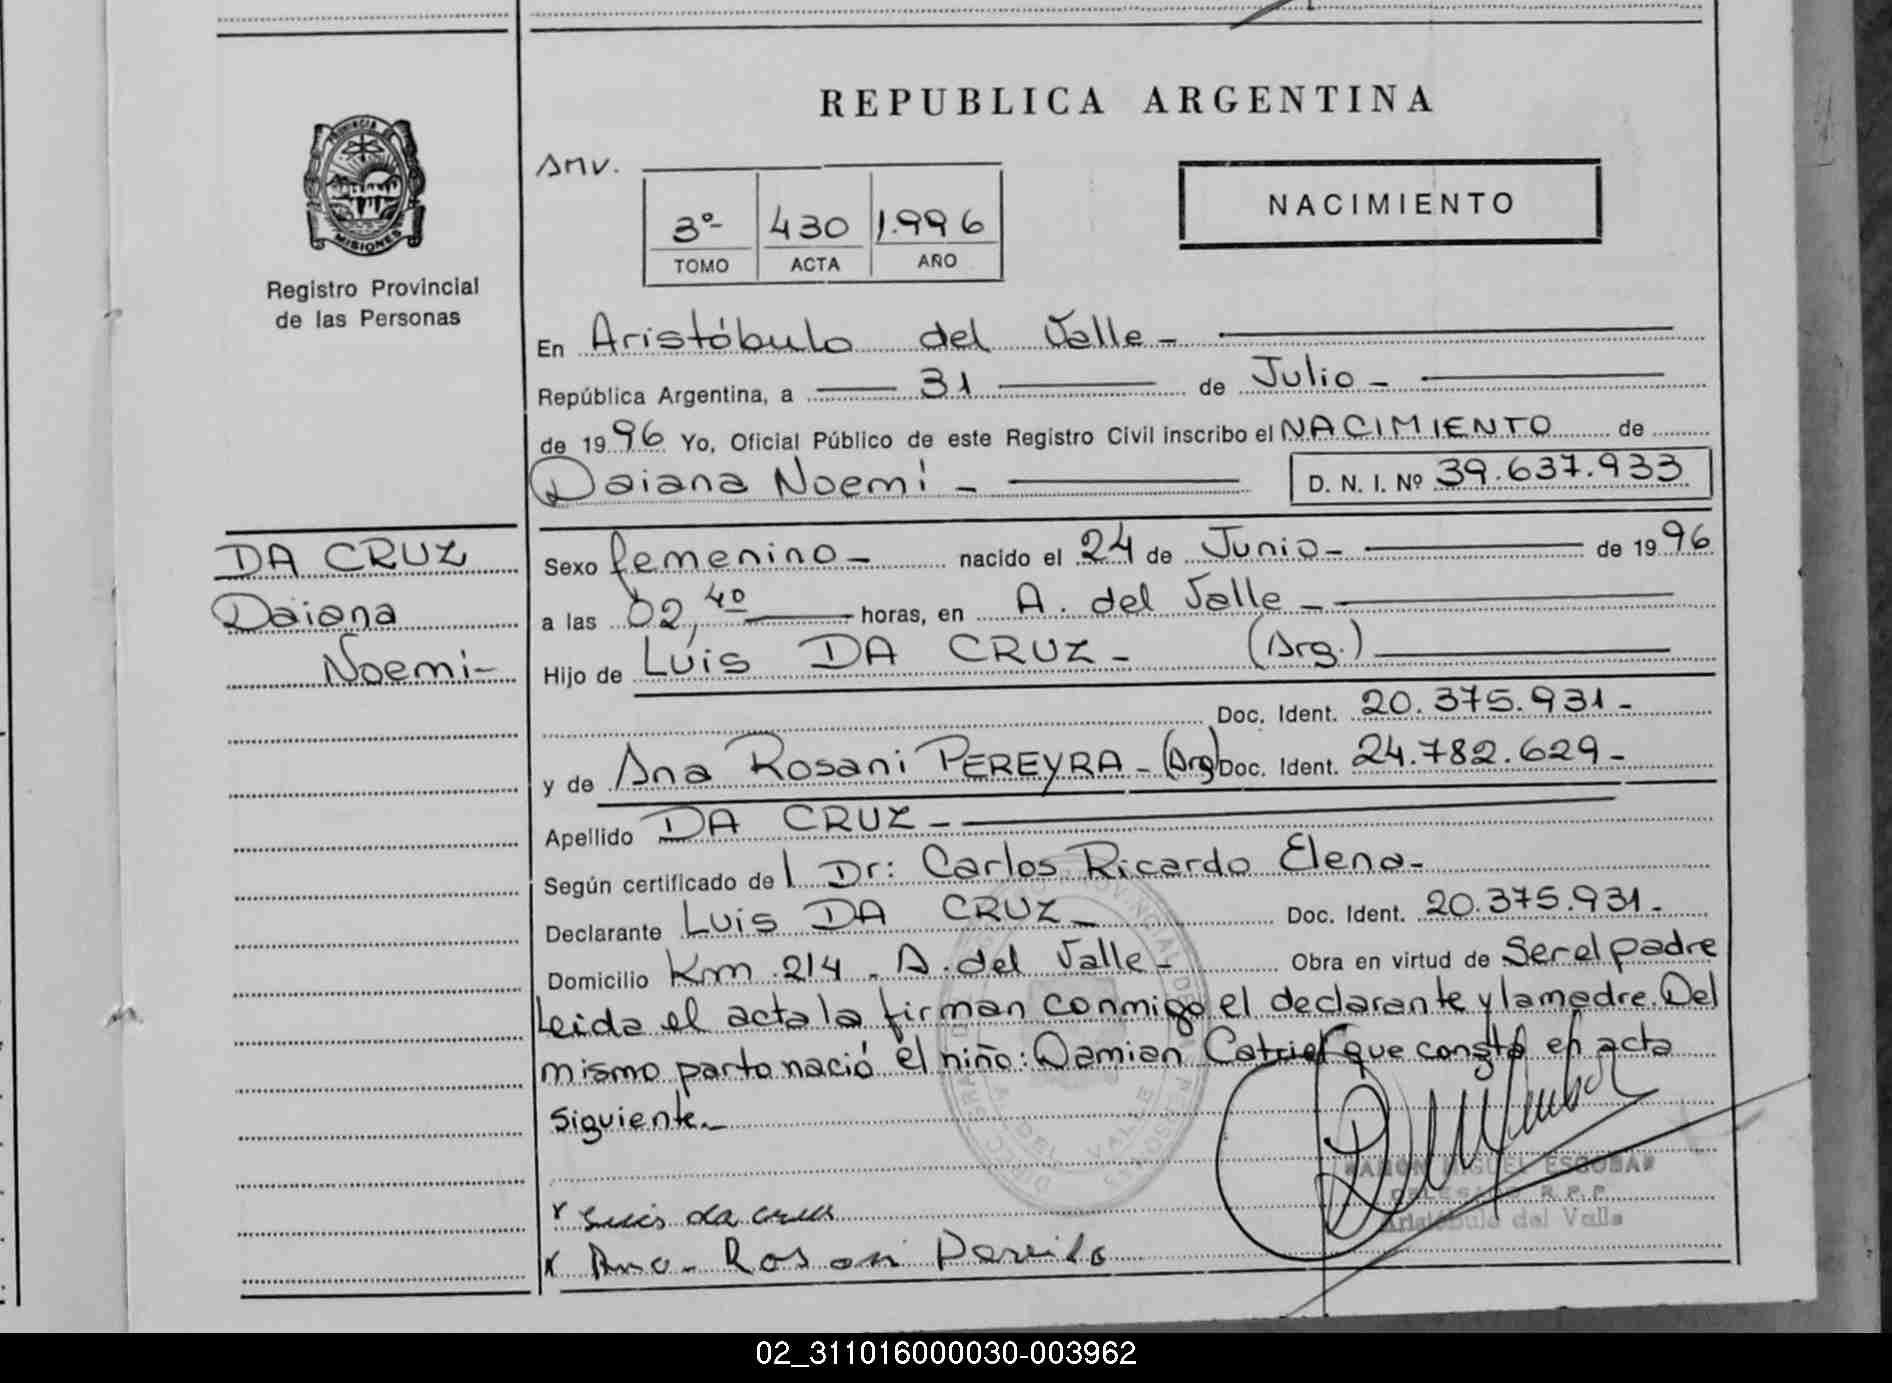 REPUBLICA ARGENTINA
PROVINCIA DE
MISIONES
Registro Provincial
de las Personas
DA CRUZ
Daiana
Noemi-
3º 430 1.996
TOMO ACTA AÑO
NACIMIENTO
En Aristóbulo del Valle-
República Argentina, a 31 de Julio-
de 1996 Yo, Oficial Público de este Registro Civil inscribo el NACIMIENTO de
Daiana Noemi - D. N. I. Nº 39.637.933
Sexo femenino- nacido el 24 de Junio- de 1996
a las 02,40 horas, en A. del Valle-
Hijo de Luis DA CRUZ- (Arg.)
Doc. Ident. 20.375.931-
y de Ana Rosani PEREYRA-(Arg) Doc. Ident. 24.782.629-
Apellido DA CRUZ-
Según certificado del Dr: Carlos Ricardo Elena-
Declarante Luis DA CRUZ- Doc. Ident. 20.375.931.
Domicilio Km 214. A. del Valle- Obra en virtud de Ser el padre
Leida el acta la firman conmigo el declarante y la madre. Del
mismo parto nació el niño: Damian Catriel que consta en acta
siguiente.-
x Luis da cruz
x Ana Rosani
RAMON MIGUEL ESCOBAR
R.P.P.
Aristóbulo del Valle
02_311016000030-003962